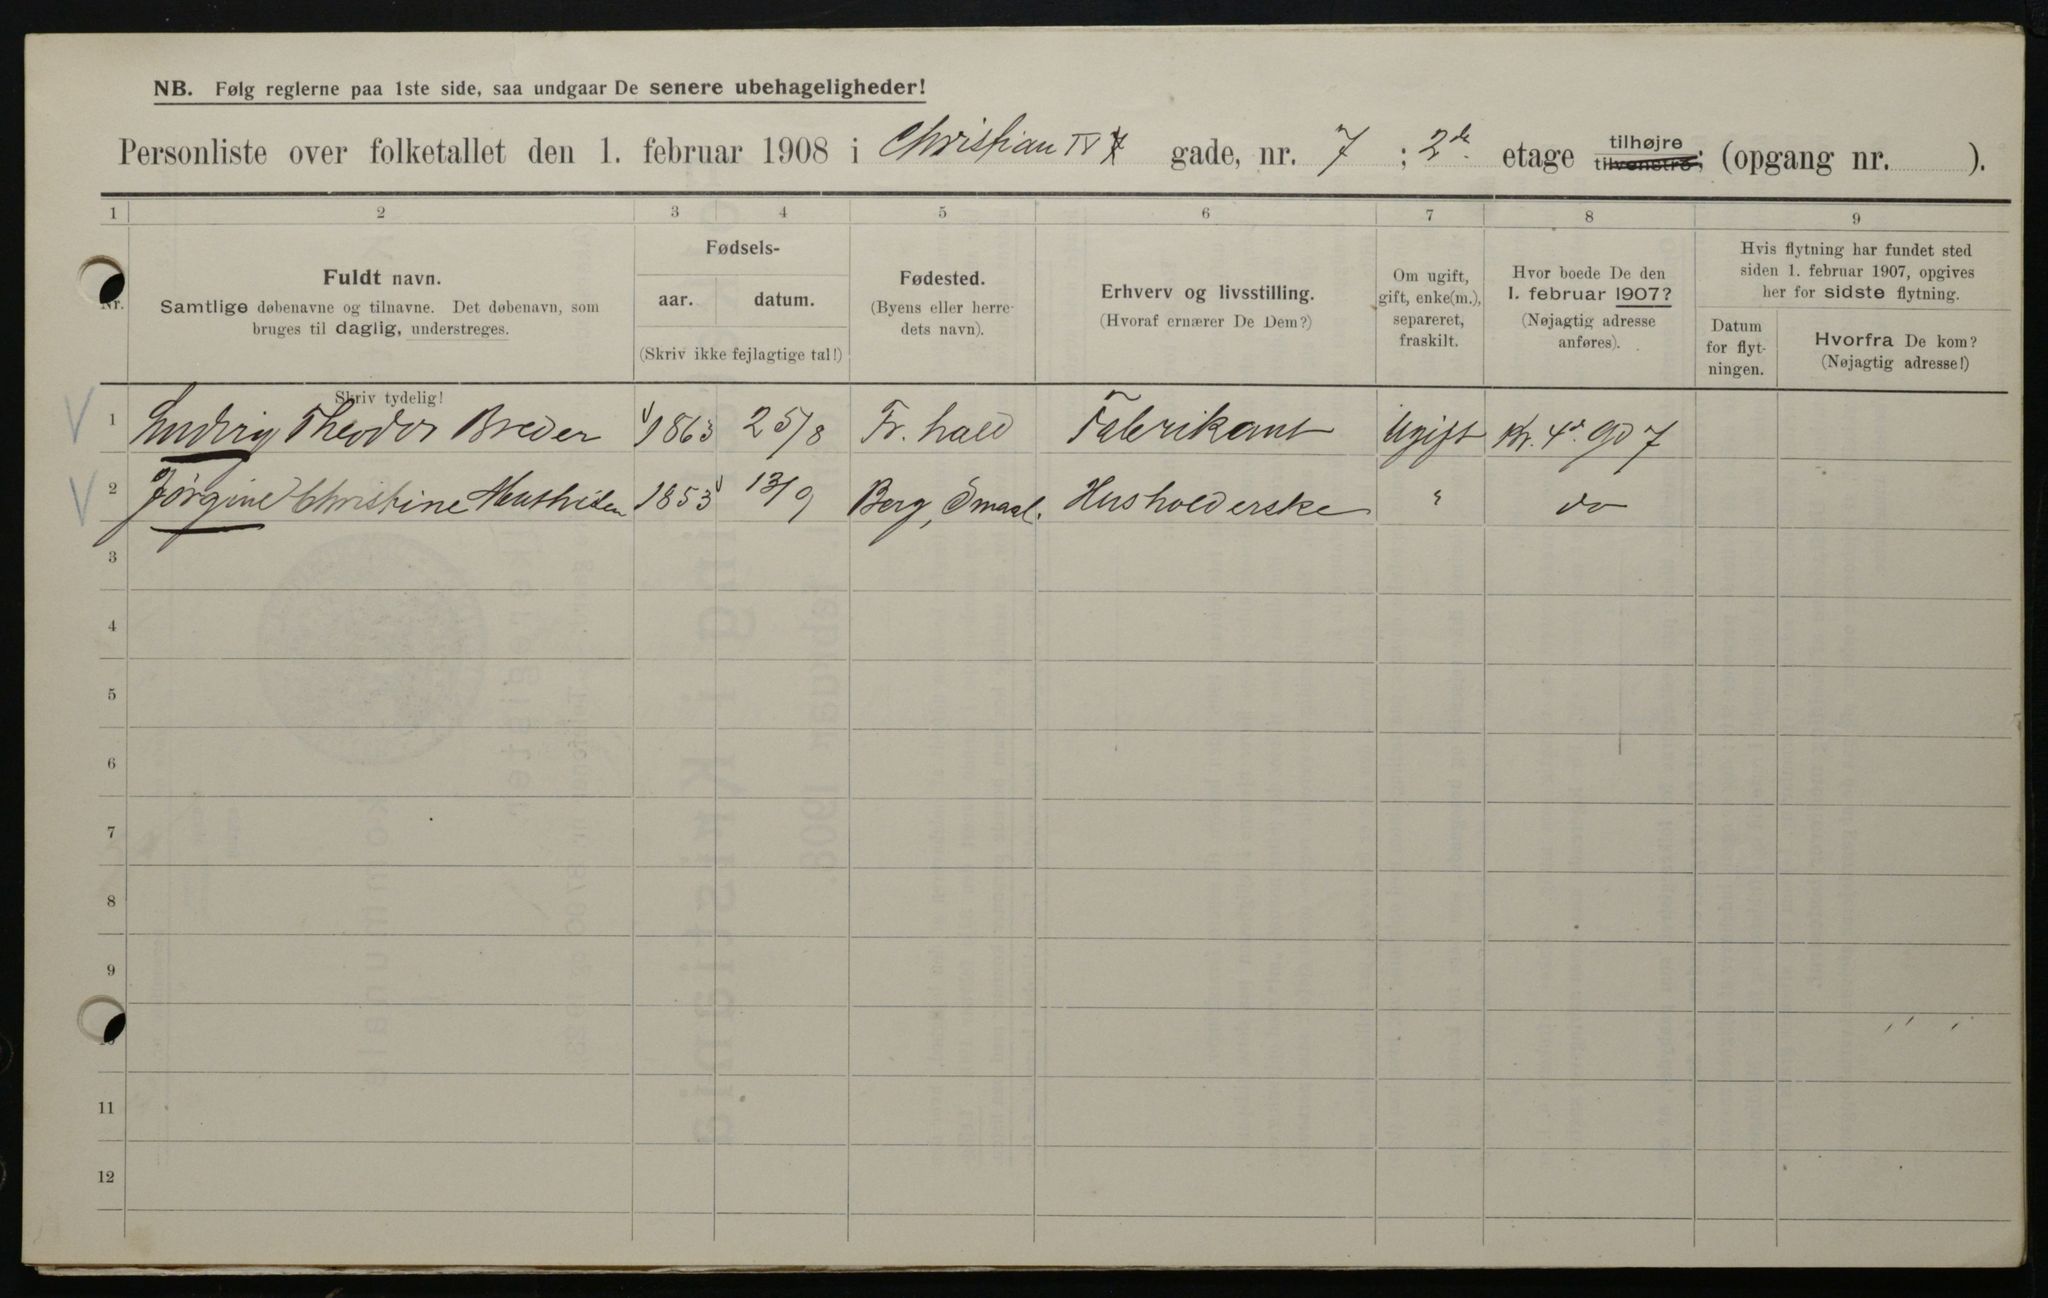 NB. Følg reglerne paa 1ste side, saa undgaar De senere ubehageligheder!
Personliste over folketallet den 1. februar 1908 i Christian IV gade, nr. 7 ; 2de etage tilhøjre tilvenstre; (opgang nr. ).
1 2 3 4 5 6 7 8 9
Nr.
Fuldt navn.
Samtlige døbenavne og tilnavne. Det døbenavn, som
bruges til daglig, understreges.
Skriv tydelig!
Fødsels-
aar. datum.
(Skriv ikke fejlagtige tal!)
Fødested.
(Byens eller herre-
dets navn).
Erhverv og livsstilling.
(Hvoraf ernærer De Dem?)
Om ugift,
gift, enke(m.),
separeret,
fraskilt.
Hvor boede De den
1. februar 1907?
(Nøjagtig adresse
anføres).
Hvis flytning har fundet sted
siden 1. februar 1907, opgives
her for sidste flytning.
Datum
for flyt-
ningen.
Hvorfra De kom?
(Nøjagtig adresse!)
1 Ludvig Theodor Breder 1863 25/8 Fr.hald Fabrikant Ugift Kr. 4's g. 7
2 Jørgine Christine 1853 13/9 Berg, Smaal. Husholderske " do
3
4
5
6
7
8
9
10
11
12